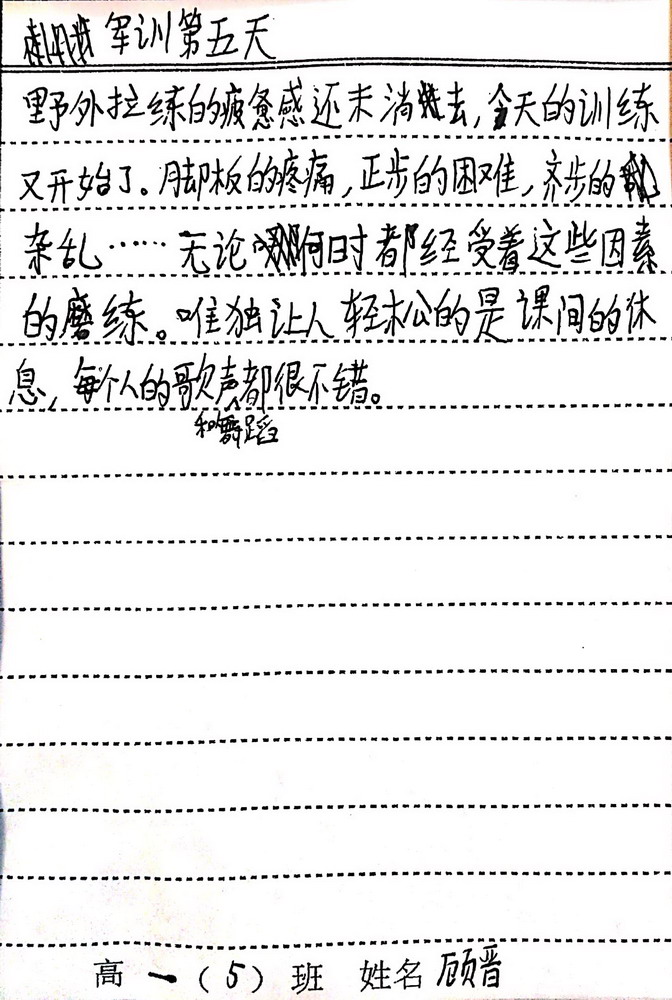 军训第五天
野外拉练的疲惫感还未消去,今天的训练
又开始了。脚板的疼痛,正步的困难,齐步的
杂乱……无论何时都经受着这些因素
的磨练。唯独让人轻松的是课间的休
息,每个人的歌声都很不错。
和舞蹈
高一(5)班 姓名 顾晋